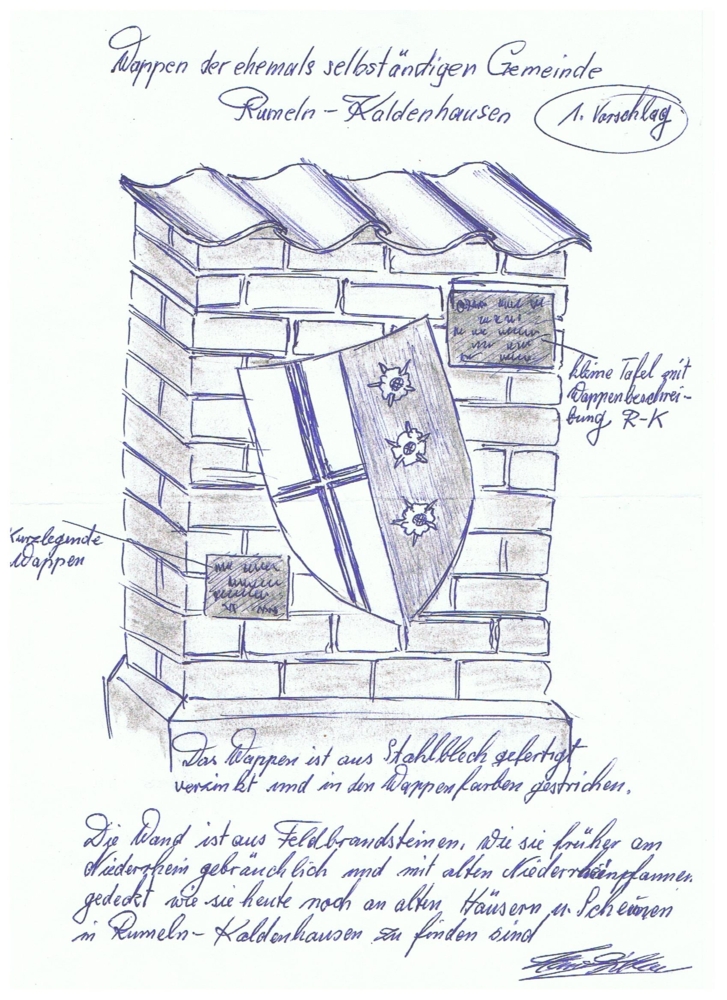 Wappen der ehemals selbständigen Gemeinde
Rumeln-Kaldenhausen
1. Vorschlag
kleine Tafel mit
Wappenbeschrei-
bung R-K
Kurzlegende
Wappen
Das Wappen ist aus Stahlblech gefertigt
verzinkt und in den Wappenfarben gestrichen.
Die Wand ist aus Feldbrandsteinen, wie sie früher am
Niederrhein gebräuchlich und mit alten Niederrheinpfannen
gedeckt wie sie heute noch an alten Häusern u. Scheunen
in Rumeln-Kaldenhausen zu finden sind